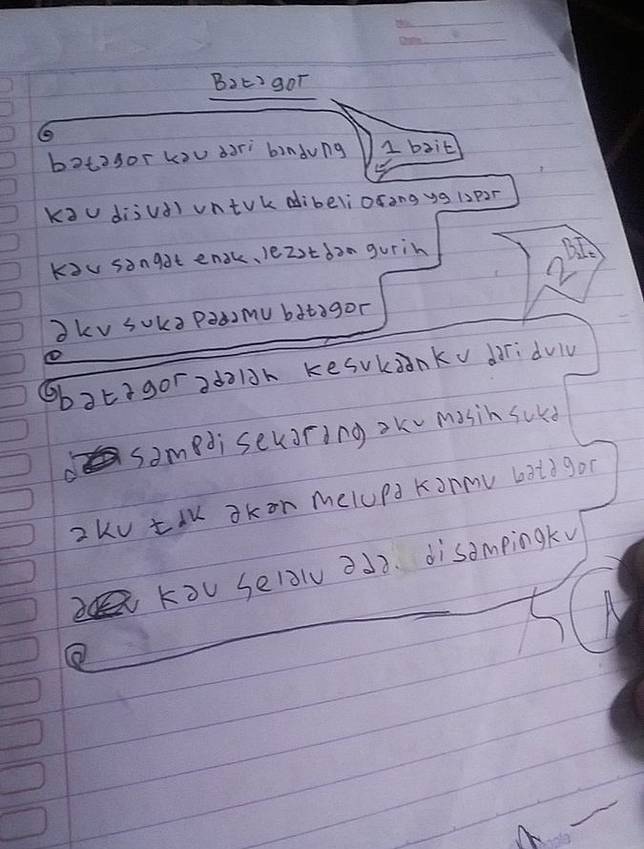 Batagor
batagor kau dari bandung
1 bait
kau dijual untuk dibeli orang yg lapar
kau sangat enak, lezat dan gurih
aku suka padamu batagor
2 Bit
batagor adalah kesukaanku dari dulu
sampai sekarang aku masih suka
aku tdk akan melupakanmu batagor
kau selalu ada. disampingku
5 A